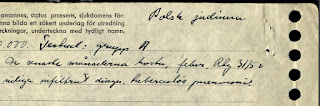 onamnes, status præsens, sjukdomens för-
nna bilda ett säkert underlag för utredning
eckningar, underteckna med tydligt namn.
Polsk judinna
0.000. Testad: grupp A
De senaste månaderna hosta, feber. Rtg 31/5 :
rikliga infiltrat dinga, tuberculös pneumoni